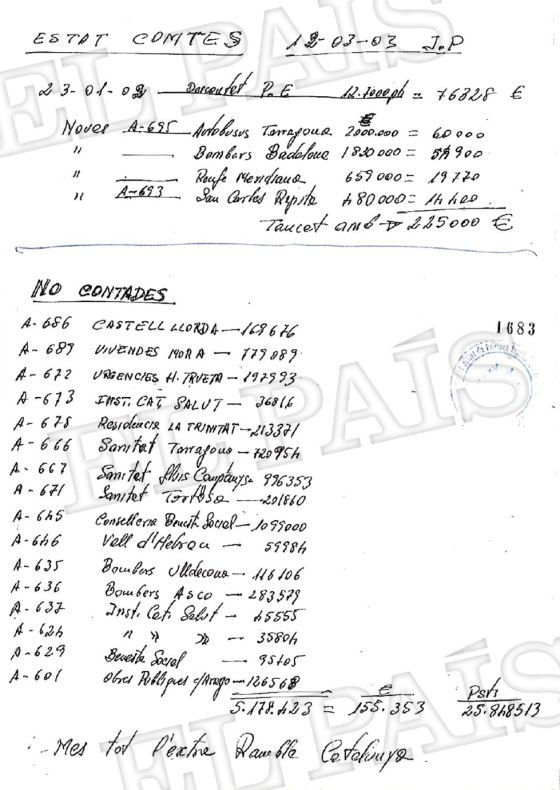 ESTAT COMTES 12-03-03 J.P
23-01-02 Descomtat P.E = 76828 €
Noves A-695 Autobusus Tarragona 2000.000 = 60000
" Bombers Badalona 1830000 = 54900
" Roufe Meridiana 659000 = 19770
" A-693 San Carles Rapita 480000 = 14400
Tancat amb 225000 €
NO CONTADES
1683
A-686 CASTELL LLORDA - 168676
A-689 VIVENDES MORA - 779089
A-672 URGENCIES H. TRUETA - 197993
A-673 INST. CAT. SALUT - 36816
A-678 Residencia LA TRINITAT - 213371
A-666 Sanitat Tarragona - 720954
A-667 Sanitat Lluis Companys - 996353
A-671 Sanitat Tortosa - 201860
A-645 Conselleria Benest. Social - 1099000
A-646 Vall d'Hebron - 59984
A-635 Bombers Ulldecona - 116106
A-636 Bombers ASCO - 283579
A-637 Inst. Cat. Salut - 45555
A-624 " " " - 35804
A-629 Benesta Social - 95705
A-601 Obres Publiques c/Arago - 126568
€ Pst.
5.178.423 = 155.353 25.848513
Mes tot l'extra Rambla Catalunya
EL PAÍS
EL PAÍS
EL PAÍS
EL PAÍS